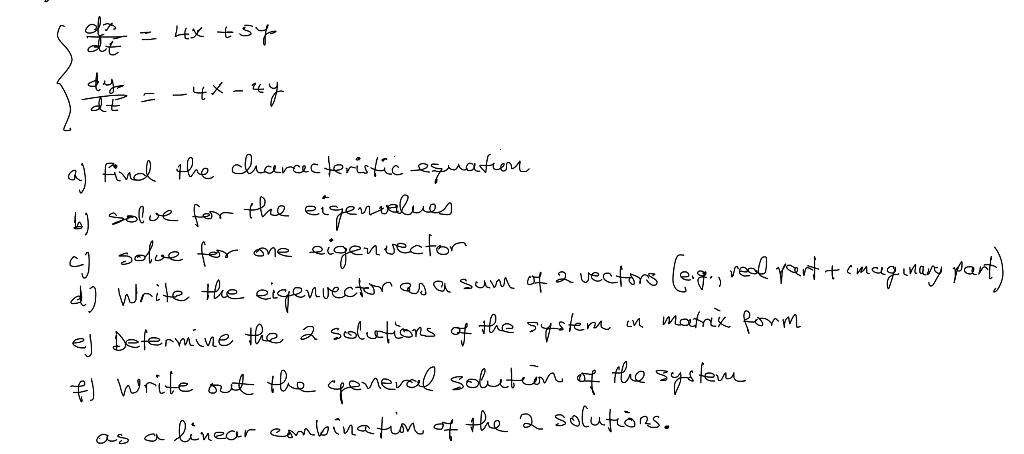 dx/dt = 4x + 5y
dy/dt = -4x - 4y
a) Find the characteristic equation
b) solve for the eigenvalues
c) solve for one eigenvector
d) Write the eigenvector as a sum of 2 vectors (e.g., real part + imaginary part)
e) Determine the 2 solutions of the system in matrix form
f) Write out the general solution of the system
as a linear combination of the 2 solutions.